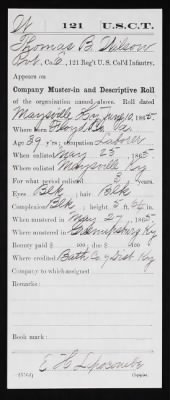 W 121 U.S.C.T.
Thomas B. Wilson
Pvt., Co. G, 121 Reg't U. S. Col'd Infantry.
Appears on
Company Muster-in and Descriptive Roll
of the organization named above. Roll dated
Maysville Ky, June 10, 1865.
Where born Floyd Co. Va.
Age 39 y'rs; occupation Laborer
When enlisted May 25, 1865
Where enlisted Maysville, Ky
For what period enlisted 3 years.
Eyes Blk; hair Blk
Complexion Blk; height 5 ft. in.
When mustered in May 27, 1865
Where mustered in
Bounty paid $ 100; due $ 100
Where credited Bath Co 9 Dist Ky
Company to which assigned
Remarks:
Book mark:
E H Lipscomb
Copyist.